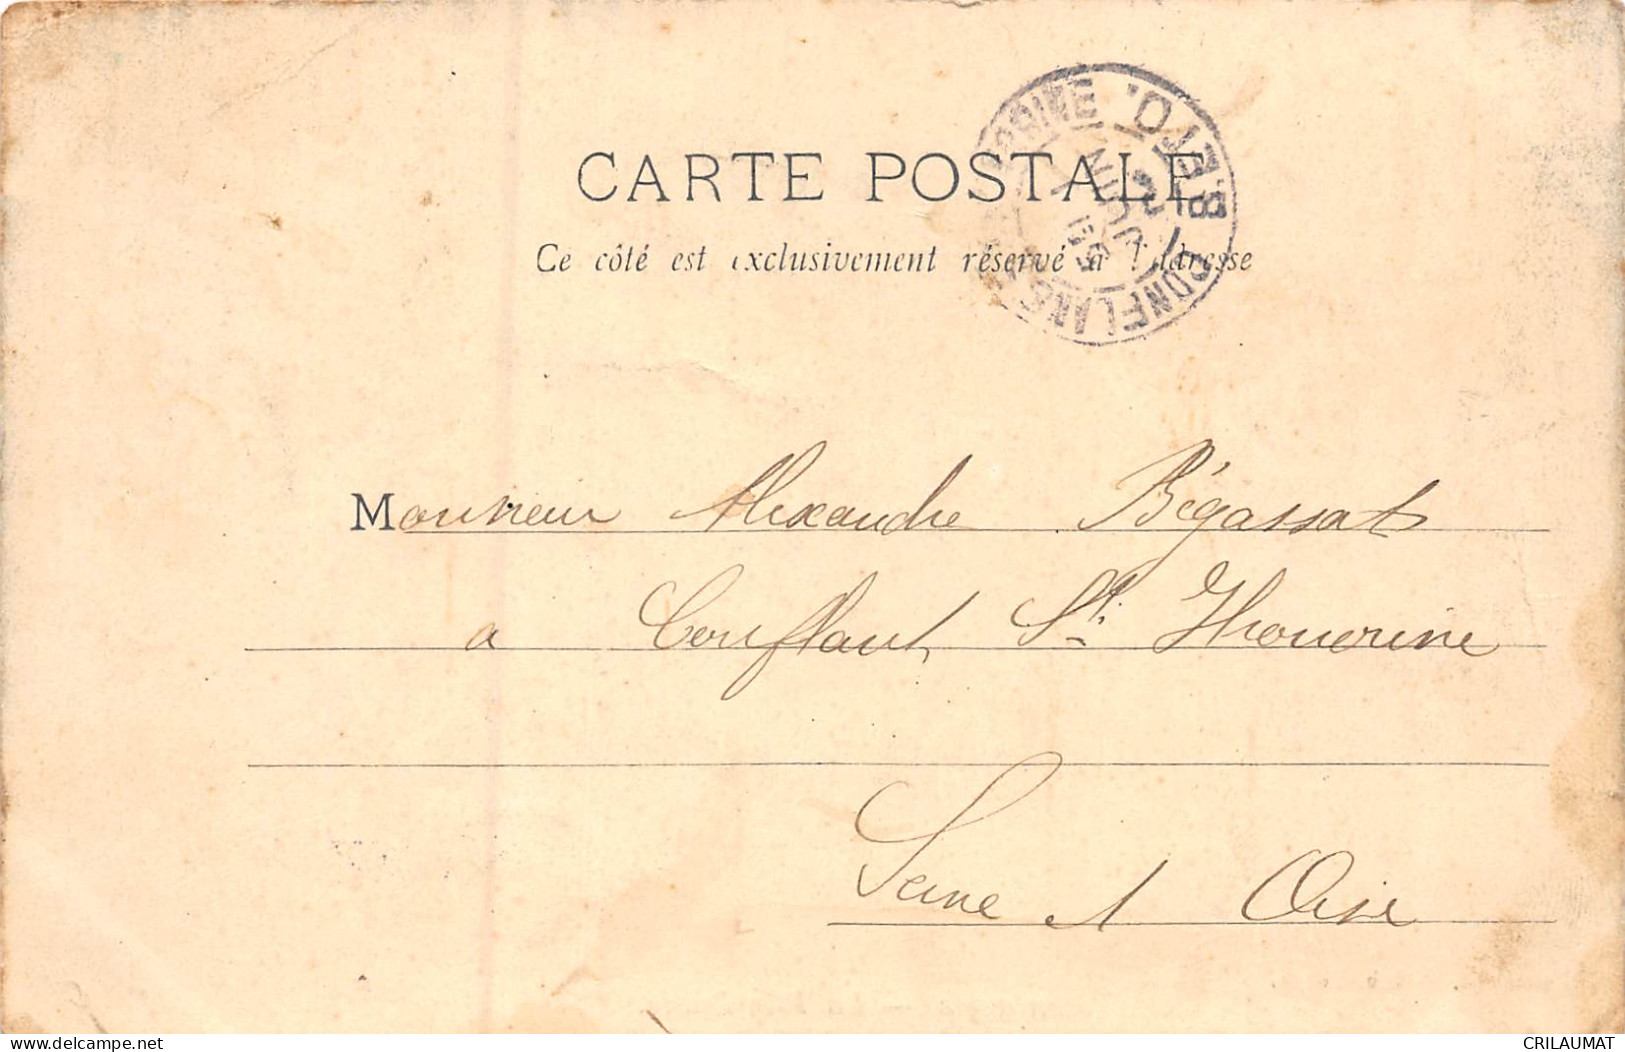 CARTE POSTALE
Ce côté est exclusivement réservé à l'adresse
CONFLANS
Sne ET O.
JUIN
Monsieur Alexandre Bégassat
a Conflant Ste Honorine
Seine et Oise
delcampe.net
CRILAUMAT